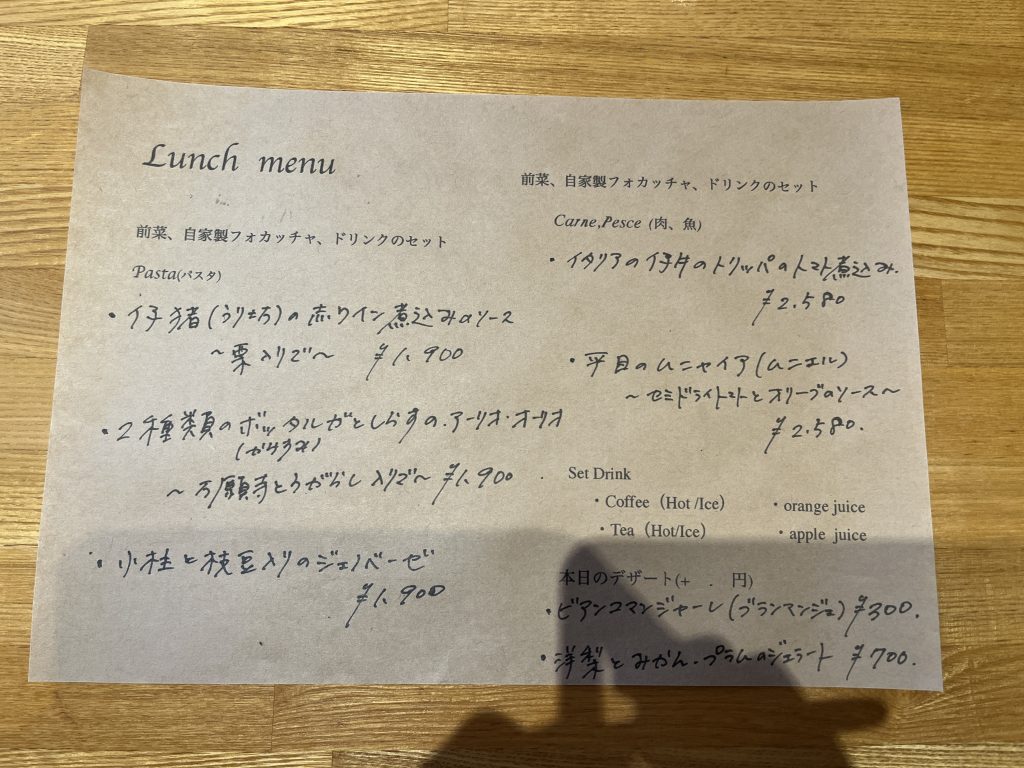 Lunch menu
前菜、自家製フォカッチャ、ドリンクのセット
Pasta(パスタ)
・仔猪(うり坊)の赤ワイン煮込みのソース
~栗入りで~ ¥1,900
・2種類のボッタルガとしらすの.アーリオ・オーリオ
(からすみ)
~万願寺とうがらし入りで~ ¥1,900
・小柱と枝豆入りのジェノベーゼ
¥1,900
前菜、自家製フォカッチャ、ドリンクのセット
Carne,Pesce (肉、魚)
・イタリアの仔牛のトリッパのトマト煮込み.
¥2.580
・平目のムニャイア(ムニエル)
~セミドライトマトとオリーブのソース~
¥2.580.
Set Drink
・Coffee (Hot /Ice) ・orange juice
・Tea (Hot/Ice) ・apple juice
本日のデザート(+ . 円)
・ビアンコマンジャーレ(ブランマンジェ) ¥300.
・洋梨とみかん.プラムのジェラート ¥700.